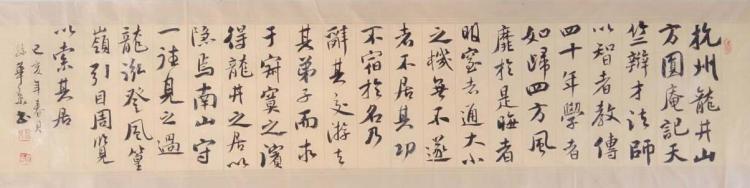 杭州龍井山
方圓庵記天
竺辯才法師
以智者教傳
四十年學者
如歸四方風
靡於是晦者
明窒者通大小
之機無不遂
者不居其功
不宿於名乃
辭其交游去
其弟子而求
于寂寞之濱
得龍井之居以
隱焉南山守
一往見之過
龍泓登風篁
嶺引目周覽
以索其居
己亥年春月
華 书